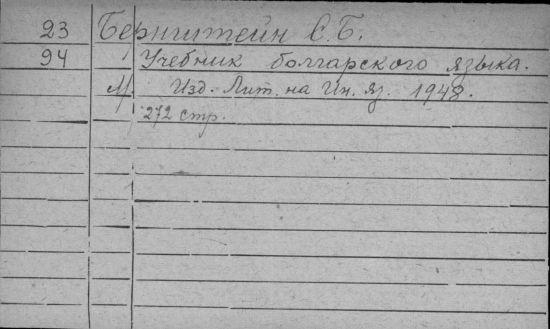 23 Бернштейн С. Б.
94 Учебник болгарского языка.
М. Изд. Лит. на Ин. яз. 1948.
272 стр.